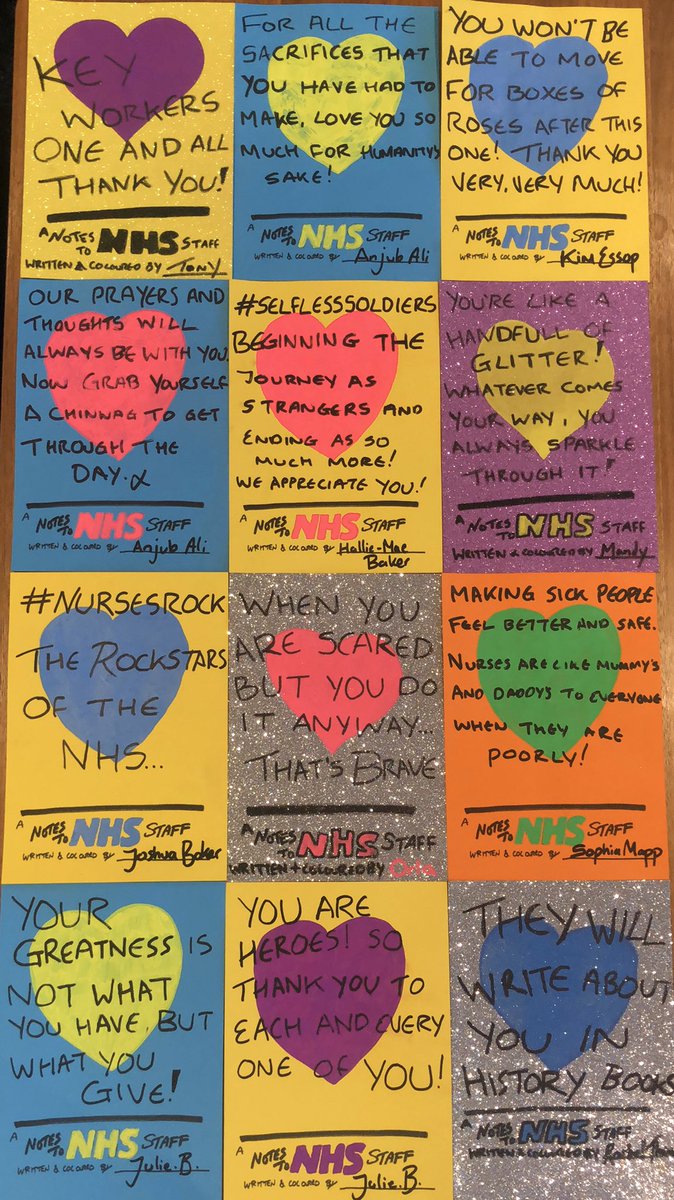 KEY
WORKERS
ONE AND ALL
THANK YOU!
A NOTES TO NHS STAFF
WRITTEN & COLOURED BY TONY
FOR ALL THE
SACRIFICES THAT
YOU HAVE HAD TO
MAKE, LOVE YOU SO
MUCH FOR HUMANITY'S
SAKE!
A NOTES TO NHS STAFF
WRITTEN & COLOURED BY Anjub Ali
YOU WON'T BE
ABLE TO MOVE
FOR BOXES OF
ROSES AFTER THIS
ONE! THANK YOU
VERY, VERY MUCH!
A NOTES TO NHS STAFF
WRITTEN & COLOURED BY Kim Essop
OUR PRAYERS AND
THOUGHTS WILL
ALWAYS BE WITH YOU.
NOW GRAB YOURSELF
A CHINWAG TO GET
THROUGH THE
DAY. X
A NOTES TO NHS STAFF
WRITTEN & COLOURED BY Anjub Ali
#SELFLESSSOLDIERS
BEGINNING THE
JOURNEY AS
STRANGERS AND
ENDING AS SO
MUCH MORE!
WE APPRECIATE YOU!
A NOTES TO NHS STAFF
WRITTEN & COLOURED BY Hallie-Mae
Baker
YOU'RE LIKE A
HANDFULL OF
GLITTER!
WHATEVER COMES
YOUR WAY, YOU
ALWAYS SPARKLE
THROUGH IT!
A NOTES TO NHS STAFF
WRITTEN & COLOURED BY Mandy
#NURSESROCK
THE ROCKSTARS
OF THE
NHS...
A NOTES TO NHS STAFF
WRITTEN & COLOURED BY Joshua Baker
WHEN YOU
ARE SCARED
BUT YOU DO
IT ANYWAY...
THAT'S BRAVE
A NOTES TO NHS STAFF
WRITTEN + COLOURED BY
MAKING SICK PEOPLE
FEEL BETTER AND SAFE.
NURSES ARE LIKE MUMMY'S
AND DADDYS TO EVERYONE
WHEN THEY ARE
POORLY!
A NOTES TO NHS STAFF
WRITTEN & COLOURED BY Sophia Mapp
YOUR
GREATNESS IS
NOT WHAT
YOU HAVE, BUT
WHAT YOU
GIVE!
A NOTES TO NHS STAFF
WRITTEN & COLOURED BY Julie.B.
YOU ARE
HEROES! SO
THANK YOU TO
EACH AND EVERY
ONE OF YOU!
A NOTES TO NHS STAFF
WRITTEN & COLOURED BY Julie.B.
THEY WILL
WRITE ABOUT
YOU IN
HISTORY BOOKS
A NOTES TO NHS STAFF
WRITTEN & COLOURED BY Rachel